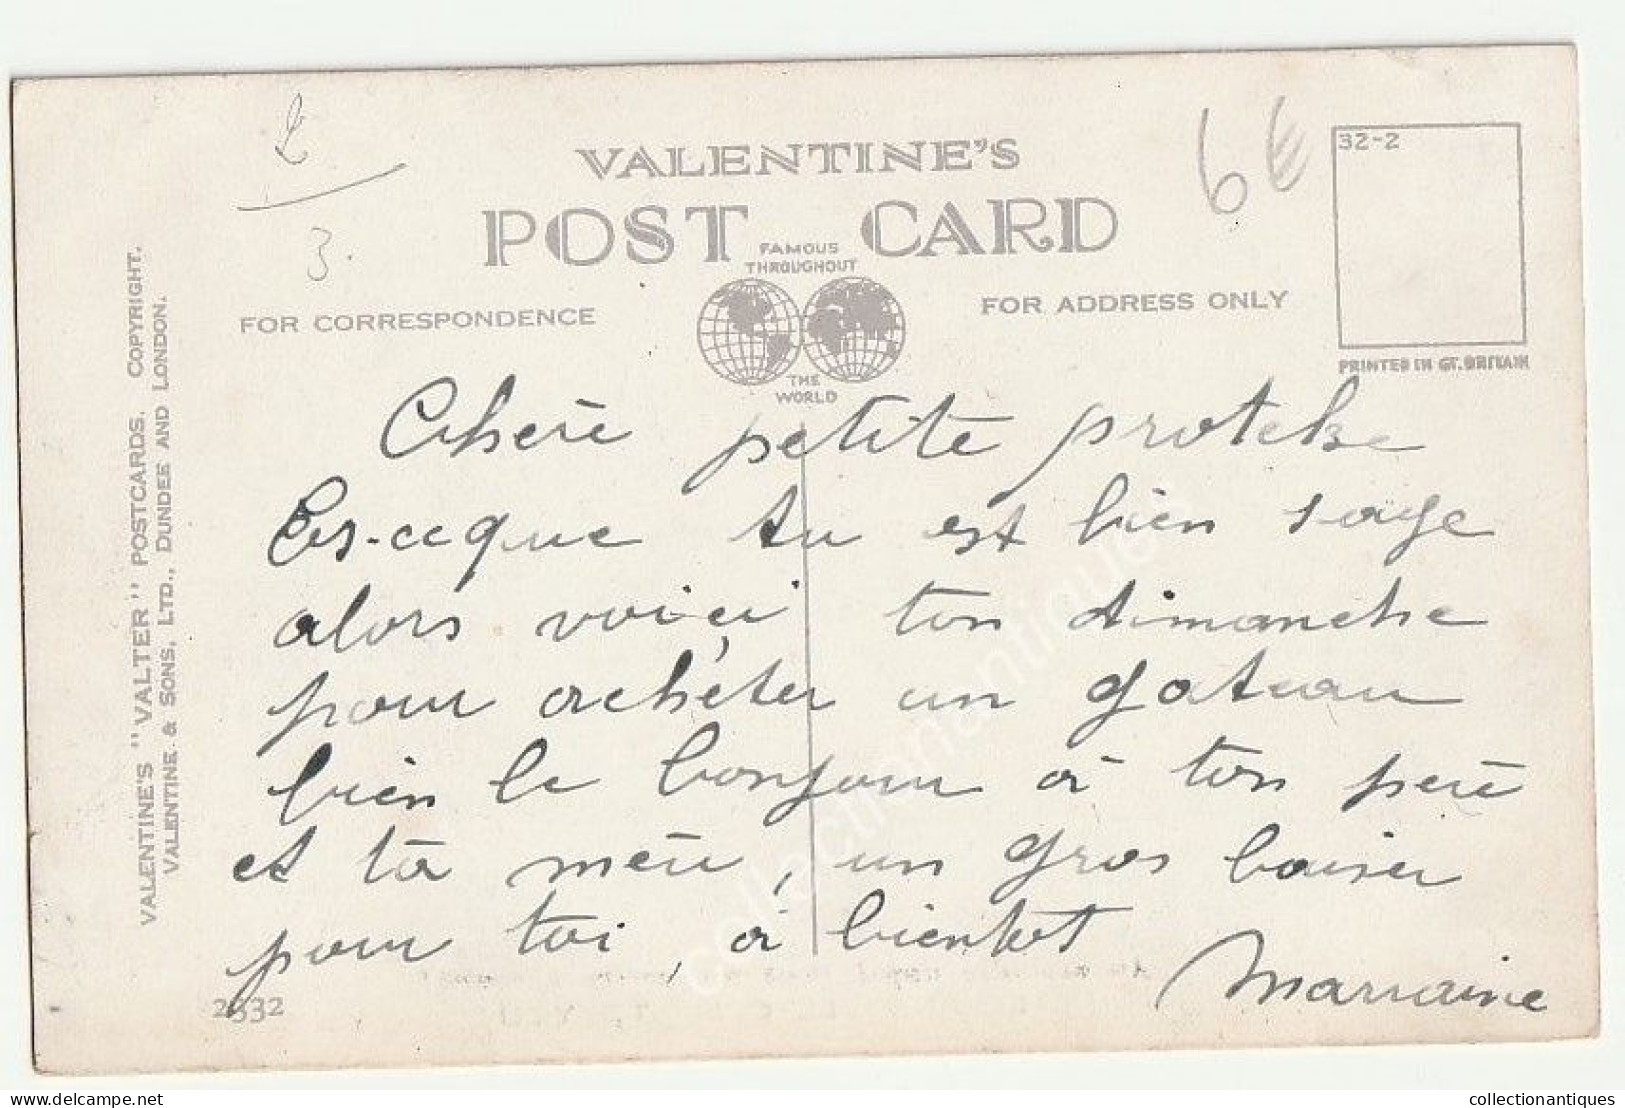 £
3.
6€
32-2
VALENTINE'S
POST CARD
FAMOUS
THROUGHOUT
THE
WORLD
FOR CORRESPONDENCE
FOR ADDRESS ONLY
PRINTED IN GT. BRITAIN
VALENTINE'S "VALTER" POSTCARDS. COPYRIGHT.
VALENTINE & SONS, LTD., DUNDEE AND LONDON.
Chère petite
Es-ce que tu est bien sage
alors voici ton dimanche
pour achéter un gateau
bien le bonjour à ton père
et ta mère, un gros baiser
pour toi, à bientot
Marraine
2332
collectionantiques
www.delcampe.net
collectionantiques